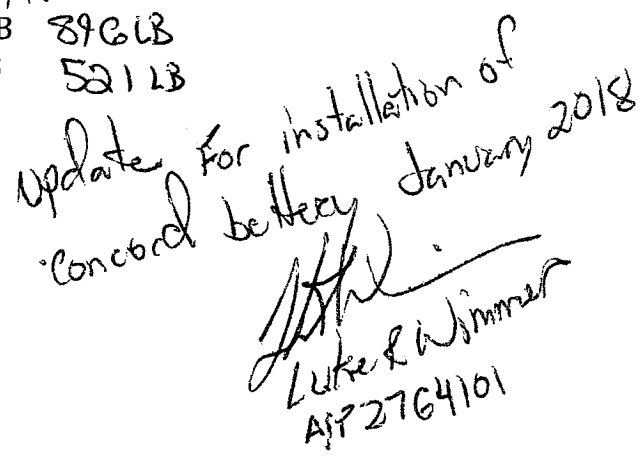 B 896 LB
521 LB
update For installation of
concord battery January 2018
Luke R Wimmer
A&P 2764101